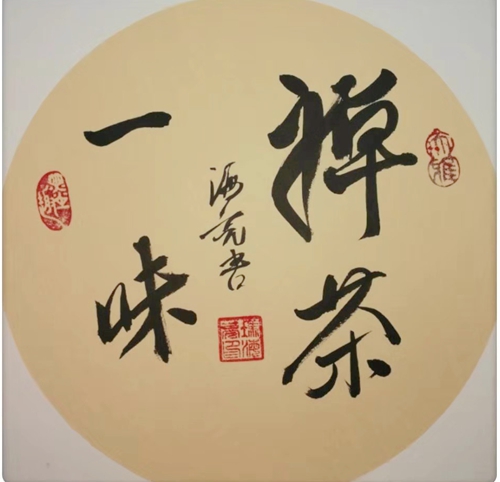 禅茶
一味
海亮书